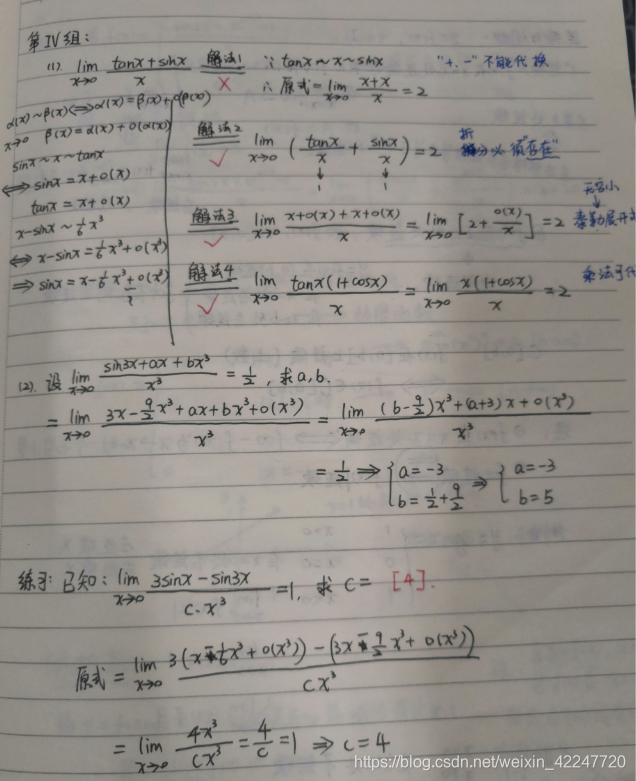 第IV组：
(1). lim x→0 (tanx+sinx)/x 解法1 ∵ tanx~x~sinx "+. -"不能代换
× ∴ 原式=lim x→0 (x+x)/x = 2
α(x)~β(x)⟺α(x)=β(x)+o(β(x))
x→0 β(x)=α(x)+o(α(x))
sinx~x~tanx
⟺ sinx=x+o(x)
tanx=x+o(x)
x-sinx~1/6 x³
⟺ x-sinx=1/6 x³+o(x³)
⇒ sinx=x-1/6 x³+o(x³)
解法2 lim x→0 (tanx/x + sinx/x) = 2 拆分必须"存在"
✓ ↓ ↓
1 1
无穷小
解法3 lim x→0 (x+o(x)+x+o(x))/x = lim x→0 [2+o(x)/x] = 2 泰勒展开
✓
解法4 lim x→0 tanx(1+cosx)/x = lim x→0 x(1+cosx)/x = 2 乘法可代
✓
(2). 设 lim x→0 (sin3x+ax+bx³)/x³ = 1/2, 求a,b.
= lim x→0 (3x-9/2 x³+ax+bx³+o(x³))/x³ = lim x→0 ((b-9/2)x³+(a+3)x+o(x³))/x³
= 1/2 ⇒ { a=-3 b=1/2+9/2 ⇒ { a=-3 b=5
练习: 已知: lim x→0 (3sinx-sin3x)/(c·x³) = 1, 求 C= [4].
原式 = lim x→0 (3(x-1/6 x³+o(x³))-(3x-9/2 x³+o(x³)))/(cx³)
= lim x→0 4x³/(cx³) = 4/c = 1 ⇒ c=4
https://blog.csdn.net/weixin_42247720